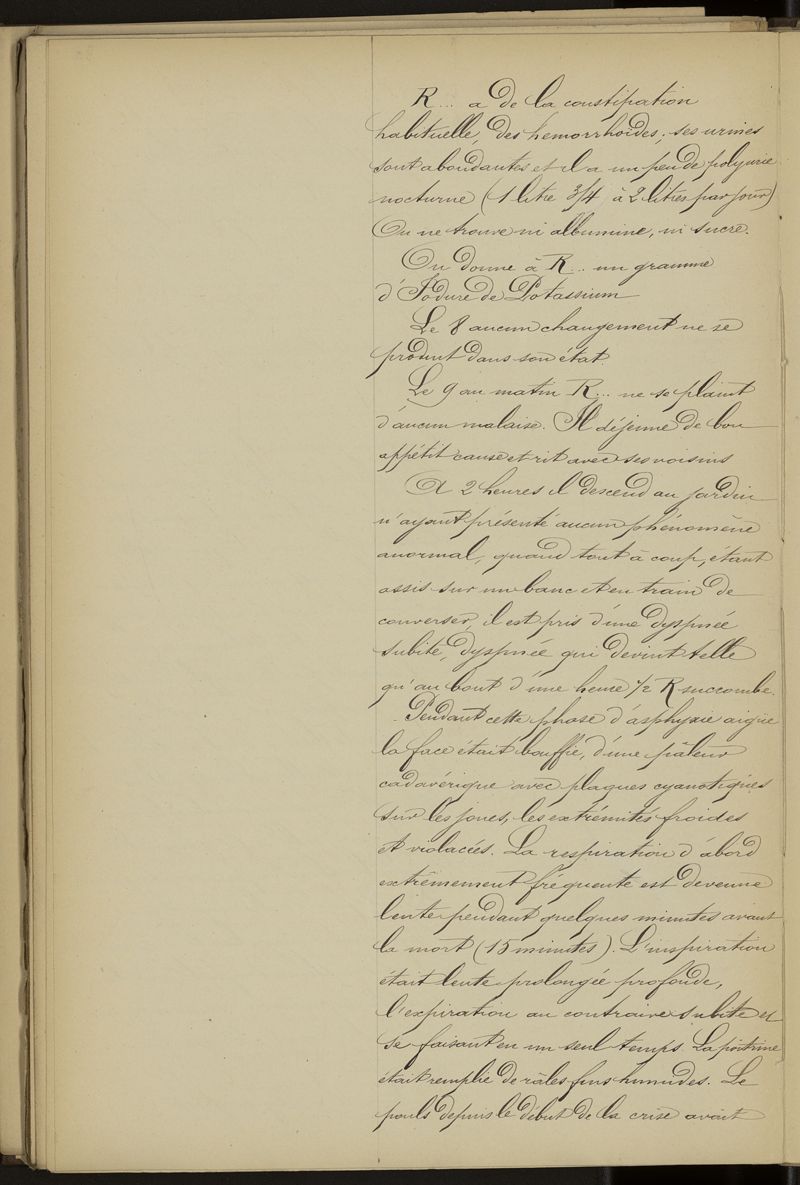 R... a de la constipation
habituelle, des hemorrhoïdes; ses urines
sont abondantes et il a un peu de polyurie
nocturne (1 litre 3/4 à 2 litres par jour)
On ne trouve ni albumine, ni sucre.
On donne à R... un gramme
d'Iodure de Potassium
Le 8 aucun changement ne se
produit dans son état.
Le 9 au matin R... ne se plaint
d'aucun malaise. Il déjeune de bon
appétit cause et rit avec ses voisins
A 2 heures il descend au jardin
n'ayant présenté aucun phénomène
anormal, quand tout à coup, etant
assis sur un banc et en train de
converser, il est pris d'une dyspnée
subite, dyspnée qui devint telle
qu'au bout d'une heure 1/2 R succombe.
Pendant cette phase d'asphyxie aigüe
la face était bouffie, d'une pâleur
cadavérique avec plaques cyanotiques
sur les joues, les extrémités froides
et violacées. La respiration d'abord
extrêmement fréquente est devenue
lente pendant quelques minutes avant
la mort (15 minutes). L'inspiration
était lente prolongée profonde,
l'expiration au contraire subite et
se faisant en un seul temps. La poitrine
était remplie de râles fins humides. Le
pouls depuis le début de la crise avait